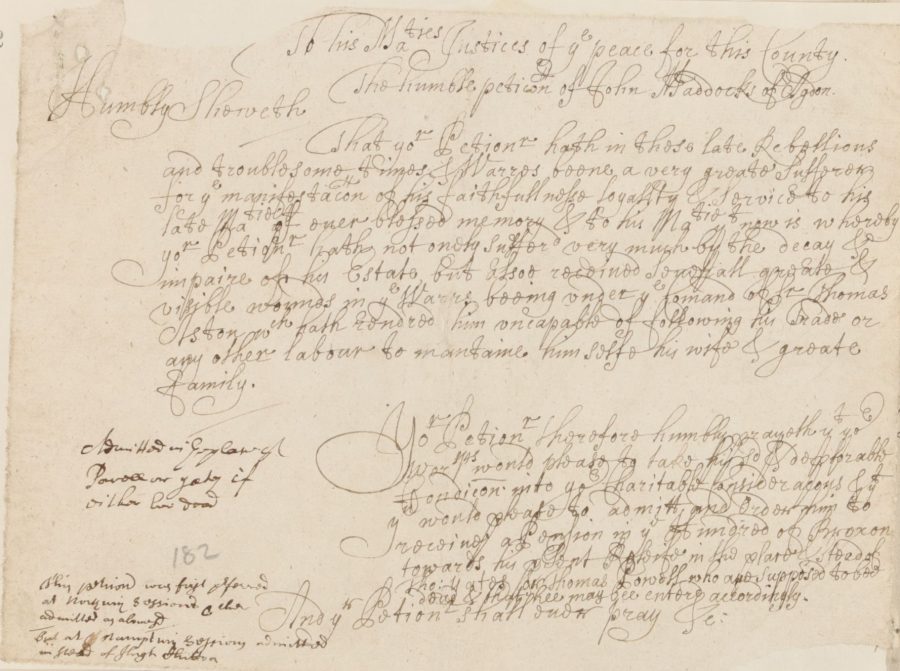 To his Ma:ties Justices of ye peace for this County.
The humble peticon of John Maddocks of Ogdon.
Humbly Sheweth
That yor Petionr hath in these late Rebellions
and troublesome times & Warres beene a very greate Sufferer
for ye manifestacon of his faithfullnesse loyalty & Service to his
late Matie of ever blessed memory & to his Matie yt now is whereby
yor Petionr hath not onely suffered very much by the decay &
impaire of his Estate but alsoe received severall greate &
visible wounes in ye Warrs beeing under ye Comand of Sr Thomas
Aston wch hath rendred him uncapable of following his Trade or
any other labour to mantaine himselfe his wife & greate
Family.
Yor Petionr therefore humbly prayeth yt yor
Worspps would please to take his sd deplorable
Condicon into yor Charitable consideracons & yt
you would please to admitt and order him to
receive a Pension in ye Hundred of Broxon
towards his psent Releife in the place & steade of
yates or Thomas Powell who are supposed to bee
dead & that hee may bee entered accordingly.
And yr Petionr shall ever pray &c:
Admitted in place of
Powell or yates if
either bee dead
182
This peticion was first pferred
at Sessions
admitted as
But at Namptwich Sessions admitted
in stead of Hugh